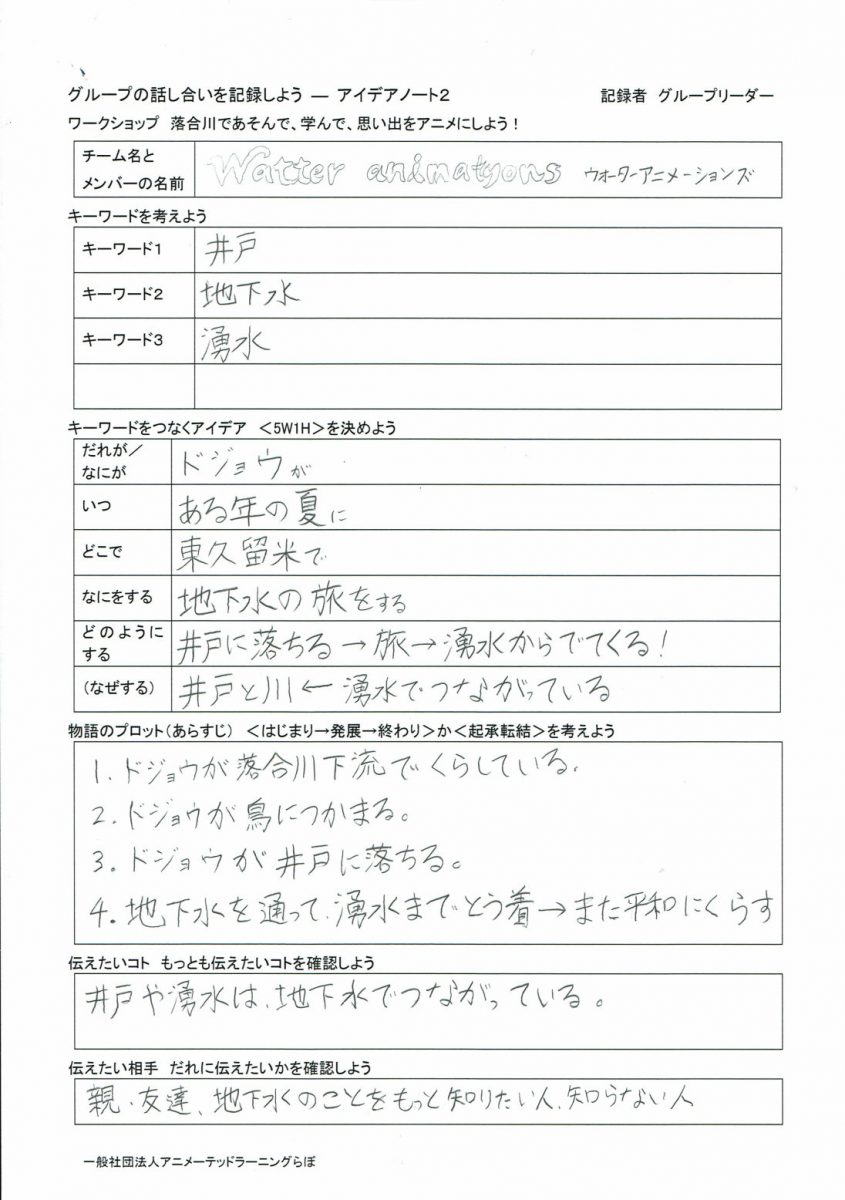 グループの話し合いを記録しよう ― アイデアノート2 記録者 グループリーダー
ワークショップ 落合川であそんで、学んで、思い出をアニメにしよう！
チーム名と
メンバーの名前
Watter animatyons ウォーターアニメーションズ
キーワードを考えよう
キーワード1 井戸
キーワード2 地下水
キーワード3 湧水
キーワードをつなぐアイデア ＜5W1H＞を決めよう
だれが／
なにが
ドジョウが
いつ ある年の夏に
どこで 東久留米で
なにをする 地下水の旅をする
どのように
する
井戸に落ちる→旅→湧水からでてくる！
（なぜする） 井戸と川←湧水でつながっている
物語のプロット（あらすじ） ＜はじまり→発展→終わり＞か＜起承転結＞を考えよう
1.ドジョウが落合川下流でくらしている.
2.ドジョウが鳥につかまる。
3.ドジョウが井戸に落ちる。
4.地下水を通って、湧水までとう着→また平和にくらす
伝えたいコト もっとも伝えたいコトを確認しよう
井戸や湧水は、地下水でつながっている。
伝えたい相手 だれに伝えたいかを確認しよう
親、友達、地下水のことをもっと知りたい人、知らない人
一般社団法人アニメーテッドラーニングらぼ